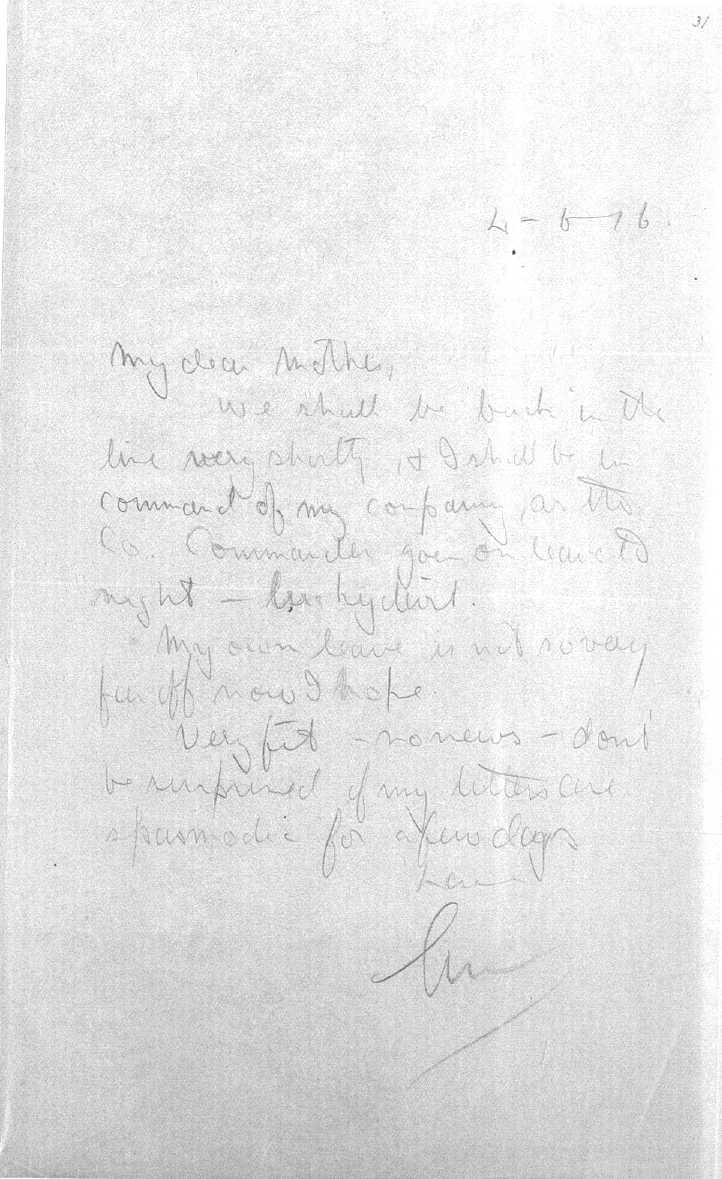 31
4-6-16.
My dear Mother,
We shall be back in the
line very shortly, & I shall be in
command of my company, as the
Co. Commander goes on leave to
night – lucky devil.
My own leave is not so very
far off now I hope.
Very fit – no news – don't
be surprised if my letters are
spasmodic for a few days